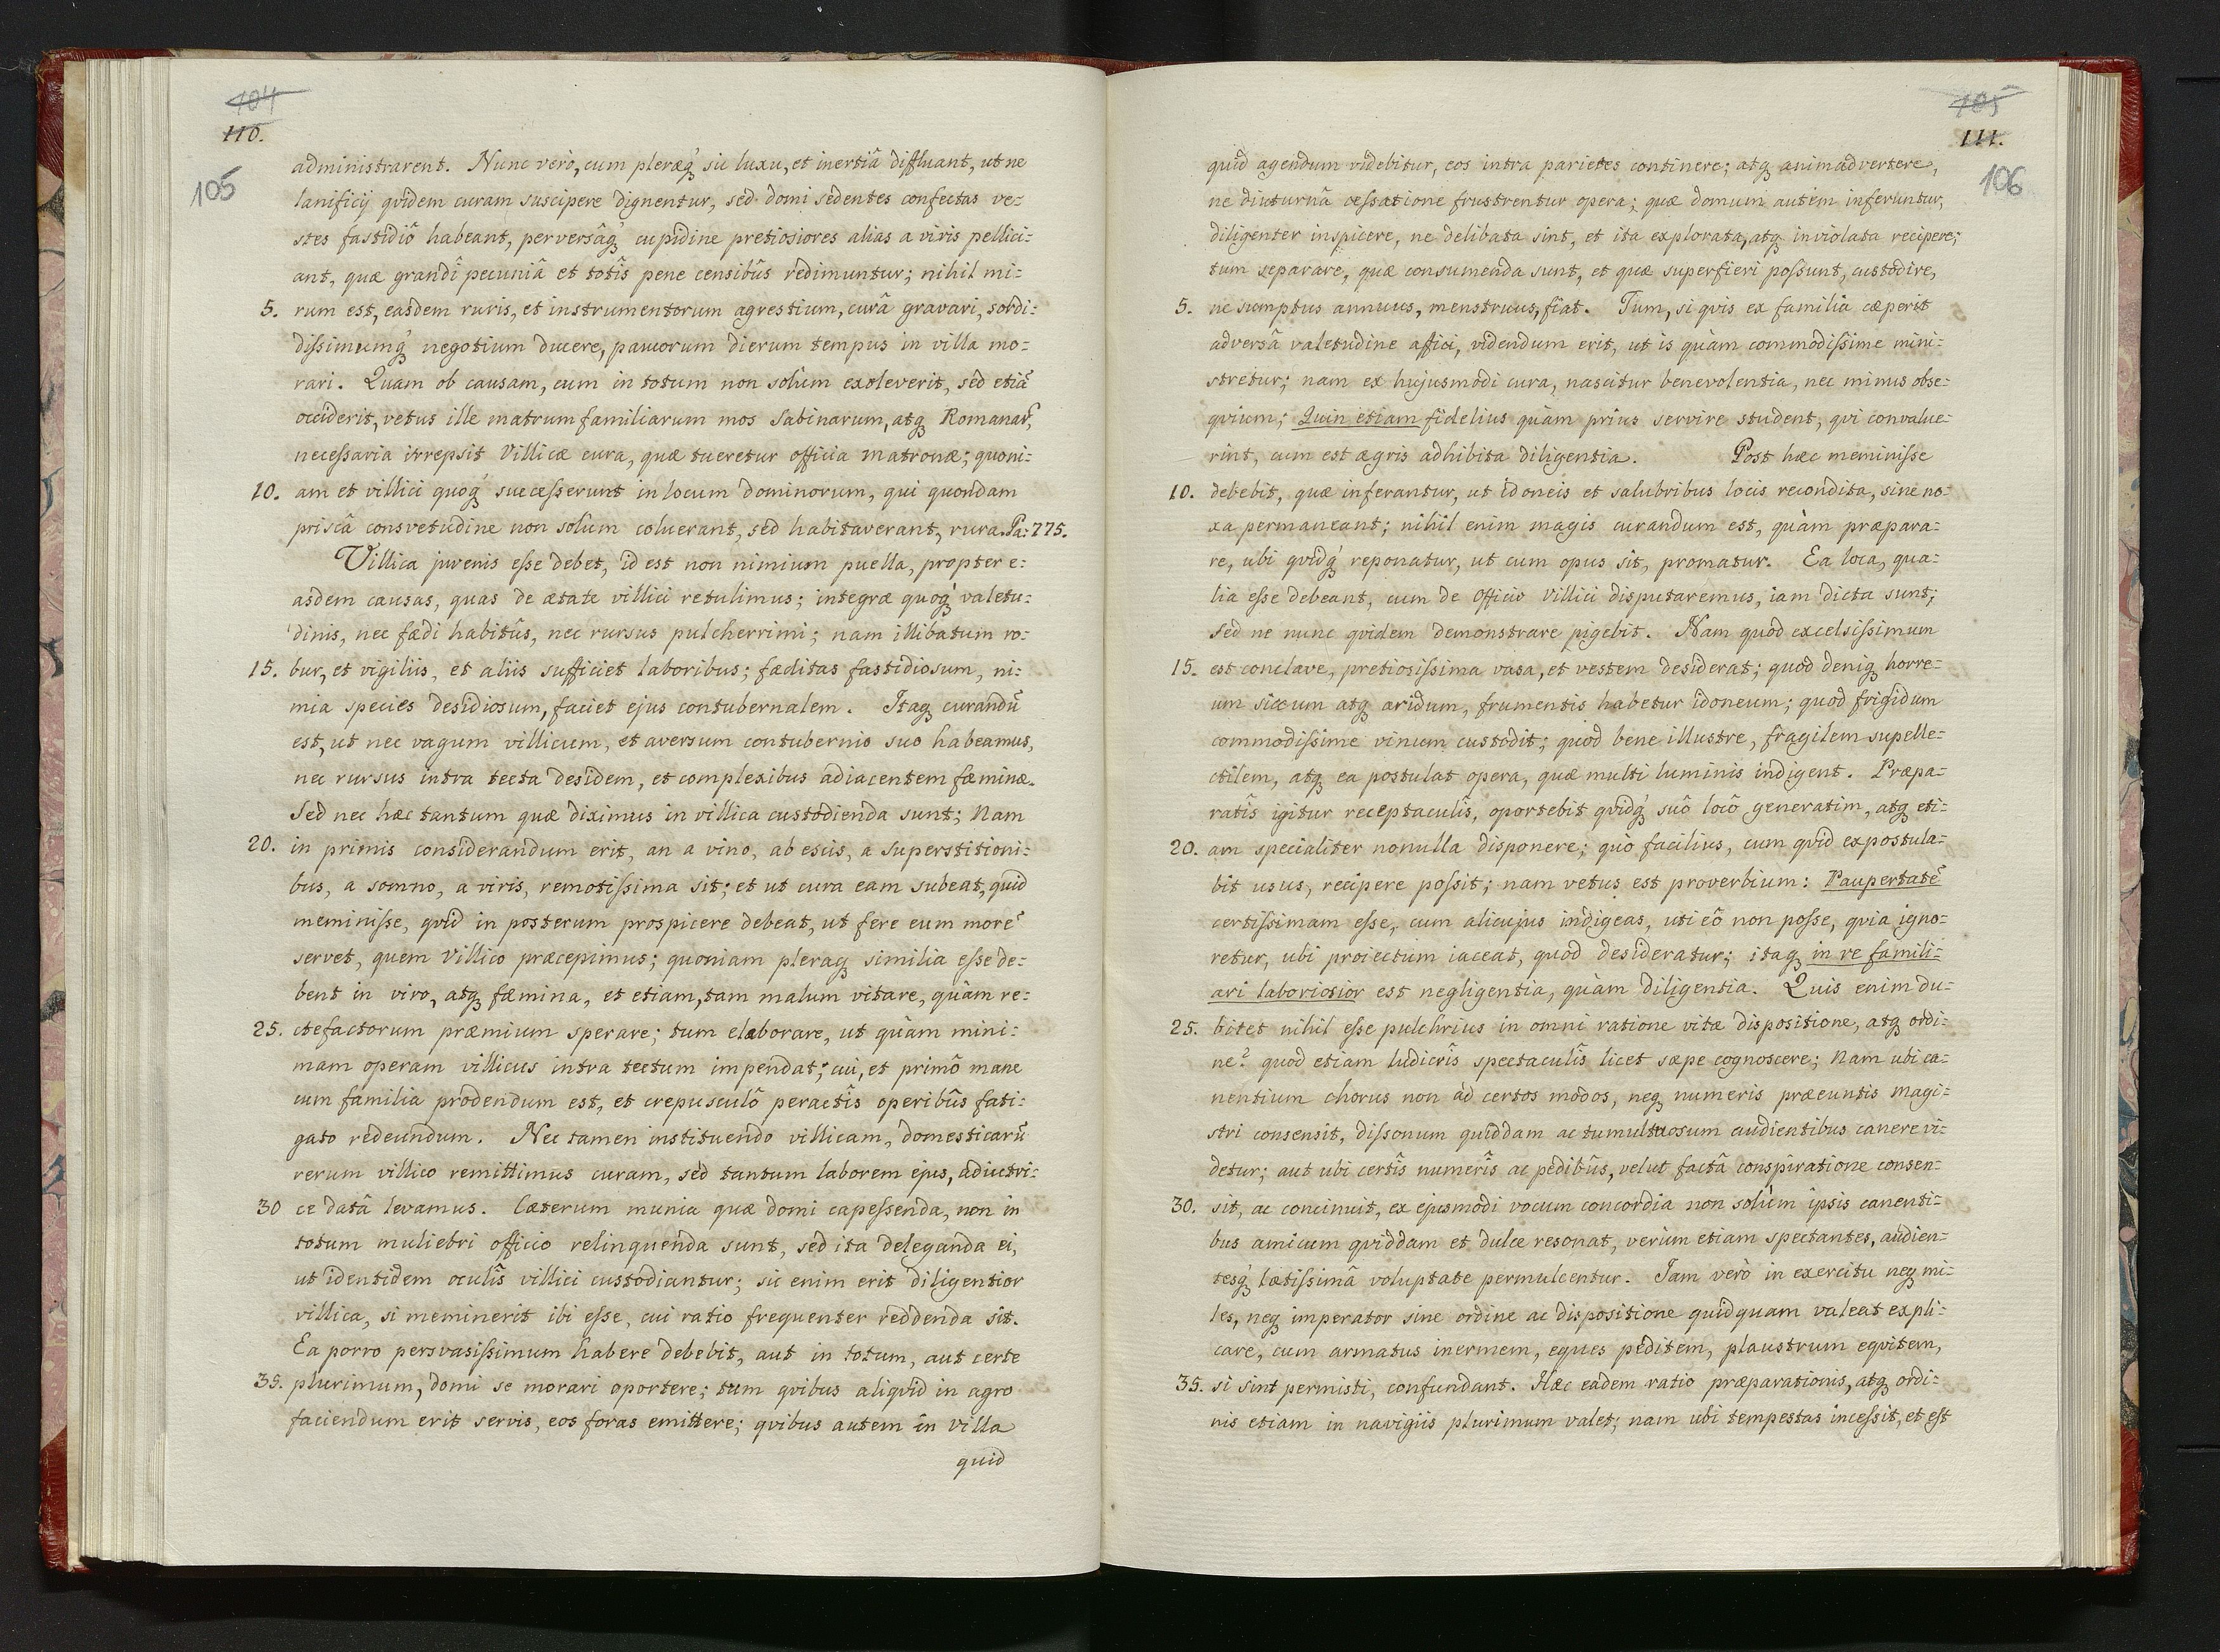 104
110.
105
administrarent. Nunc verò, cum pleræq́ sic luxu, et inertiâ diffluant, ut ne
lanificij qvidem curam suscipere dignentur, sed domi sedentes confectas ve=
stes fastidiô habeant, perversâq́ cupidine pretiosiores alias a viris pellici=
ant, quæ grandî pecuniâ et totîs pene censibûs redimuntur; nihil mi=
5. rum est, easdem ruris, et instrumentorum agrestium, curâ gravari, sordi=
dissimumq́ negotium ducere, paucorum dierum tempus in villa mo=
rari. Quam ob causam, cum in totum non solùm exoleverit, sed etiã
occiderit, vetus ille matrumfamiliarum mos Sabinarum, atq Romanar̃,
necessaria irrepsit Villicæ cura, quæ tueretur officia matronæ; quoni=
10. am et villici quoq́ successerunt in locum dominorum, qui quondam
priscâ consvetudine non solùm coluerant, sed habitaverant, rura. Pa: 775.
Villica juvenis esse debet, id est non nimium puella, propter e=
asdem causas, quas de ætate villici retulimus; integræ quoq́ valetu=
dinis, nec fædi habitûs, nec rursus pulcherrimi; nam illibatum ro=
15. bur, et vigiliis, et aliis sufficiet laboribus; fæditas fastidiosum, ni=
mia species desidiosum, faciet ejus contubernalem. Itaq curandũ
est, ut nec vagum villicum, et aversum contubernio suo habeamus,
nec rursus intra tecta desidem, et complexibus adiacentem fæminæ.
Sed nec hæc tantum quæ diximus in villica custodienda sunt; Nam
20. in primis considerandum erit, an a vino, ab escis, a superstitioni=
bus, a somno, a viris, remotissima sit; et ut cura eam subeat, quid
meminisse, qvid in posterum prospicere debeat, ut fere eum morẽ
servet, quem Villico præcepimus; quoniam pleraq similia esse de=
bent in viro, atq fæmina, et etiam, tam malum vitare, quàm re=
25. ctefactorum præmium sperare; tum elaborare, ut quàm mini=
mam operam villicus intra tectum impendat; cui, et primô mane
cum familia prodendum est, et crepusculô peractîs operibûs fati=
gato redeundum. Nec tamen instituendo villicam, domesticarũ
rerum villico remittimus curam, sed tantum laborem ejus, adiutri=
30 ce datâ levamus. Cæterum munia quæ domi capessenda, non in
totum muliebri officio relinquenda sunt, sed ita deleganda ei,
ut identidem oculîs villici custodiantur; sic enim erit diligentior
villica, si meminerit ibi esse, cui ratio frequenter reddenda sit.
Ea porro persvasissimum habere debebit, aut in totum, aut certe
35. plurimum, domi se morari oportere; tum qvibus aliqvid in agro
faciendum erit servis, eos foras emittere; qvibus autem in villa
quid
105
111.
106
quid agendum videbitur, eos intra parietes continere; atq animadvertere,
ne diuturnâ cessatione frustrentur opera; quæ domum autem inferuntur,
diligenter inspicere, ne delibata sint, et ita explorata, atq inviolata recipere;
tum separare, quæ consumenda sunt, et quæ superfieri possunt, custodire,
5. ne sumptus annuus, menstruus, fiat. Tum, si qvis ex familia cæperit
adversâ valetudine affici, videndum erit, ut is quàm commodissime mini=
stretur; nam ex hujusmodi cura, nascitur benevolentia, nec minus obse=
qvium; Quin etiam fidelius quàm prius servire student, qvi convalue=
rint, cum est ægris adhibita diligentia. Post hæc meminisse
10. debebit, quæ inferantur, ut idoneis et salubribus locis recondita, sine no=
xa permaneant; nihil enim magis curandum est, quàm præpara=
re, ubi qvidq́ reponatur, ut cum opus sit, promatur. Ea loca, qua=
lia esse debeant, cum de officio Villici disputaremus, iam dicta sunt;
Sed ne nunc qvidem demonstrare pigebit. Nam quod excelsissimum
15. est conclave, pretiosissima vasa, et vestem desiderat; quod deniq horre=
um siccum atq aridum, frumentis habetur idoneum; quod frigidum
commodissime vinum custodit; quod bene illustre, fragilem supelle=
ctilem, atq ea postulat opera, quæ multi luminis indigent. Præpa=
ratîs igitur receptaculîs, oportebit qvidq́ suô locô generatim, atq eti=
20. am specialiter nonulla disponere; quò facilius, cum qvid expostula=
bit usus, recipere possit; nam vetus est proverbium: Paupertatẽ
certissimam esse, cum alicujus indigeas, uti eô non posse, qvia igno=
retur, ubi proiectum iaceat, quod desideratur; itaq in re famili=
ari laboriosior est negligentia, quàm diligentia. Quis enim du=
25. bitet nihil esse pulchrius in omni ratione vitæ dispositione, atq ordi=
ne? quod etiam ludicrîs spectaculîs licet sæpe cognoscere; Nam ubi ca=
nentium chorus non ad certos modos, neq numeris præeuntis Magi=
stri consensit, dissonum quiddam ac tumultuosum audientibus canere vi=
detur; aut ubi certîs numerîs ac pedibûs, velut factâ conspiratione consen=
30. sit, ac concinuit, ex ejusmodi vocum concordia non solùm ipsis canenti=
bus amicum qviddam et dulce resonat, verùm etiam spectantes, audien=
tesq́ lætissimâ voluptate permulcentur. Jam verò in exercitu neq mi=
les, neq imperator sine ordine ac dispositione quidquam valeat expli=
care, cum armatus inermem, eques peditem, plaustrum eqvitem,
35. si sint permisti, confundant. Hæc eadem ratio præparationis, atq ordi=
nis etiam in navigiis plurimum valet; nam ubi tempestas incessit, et est